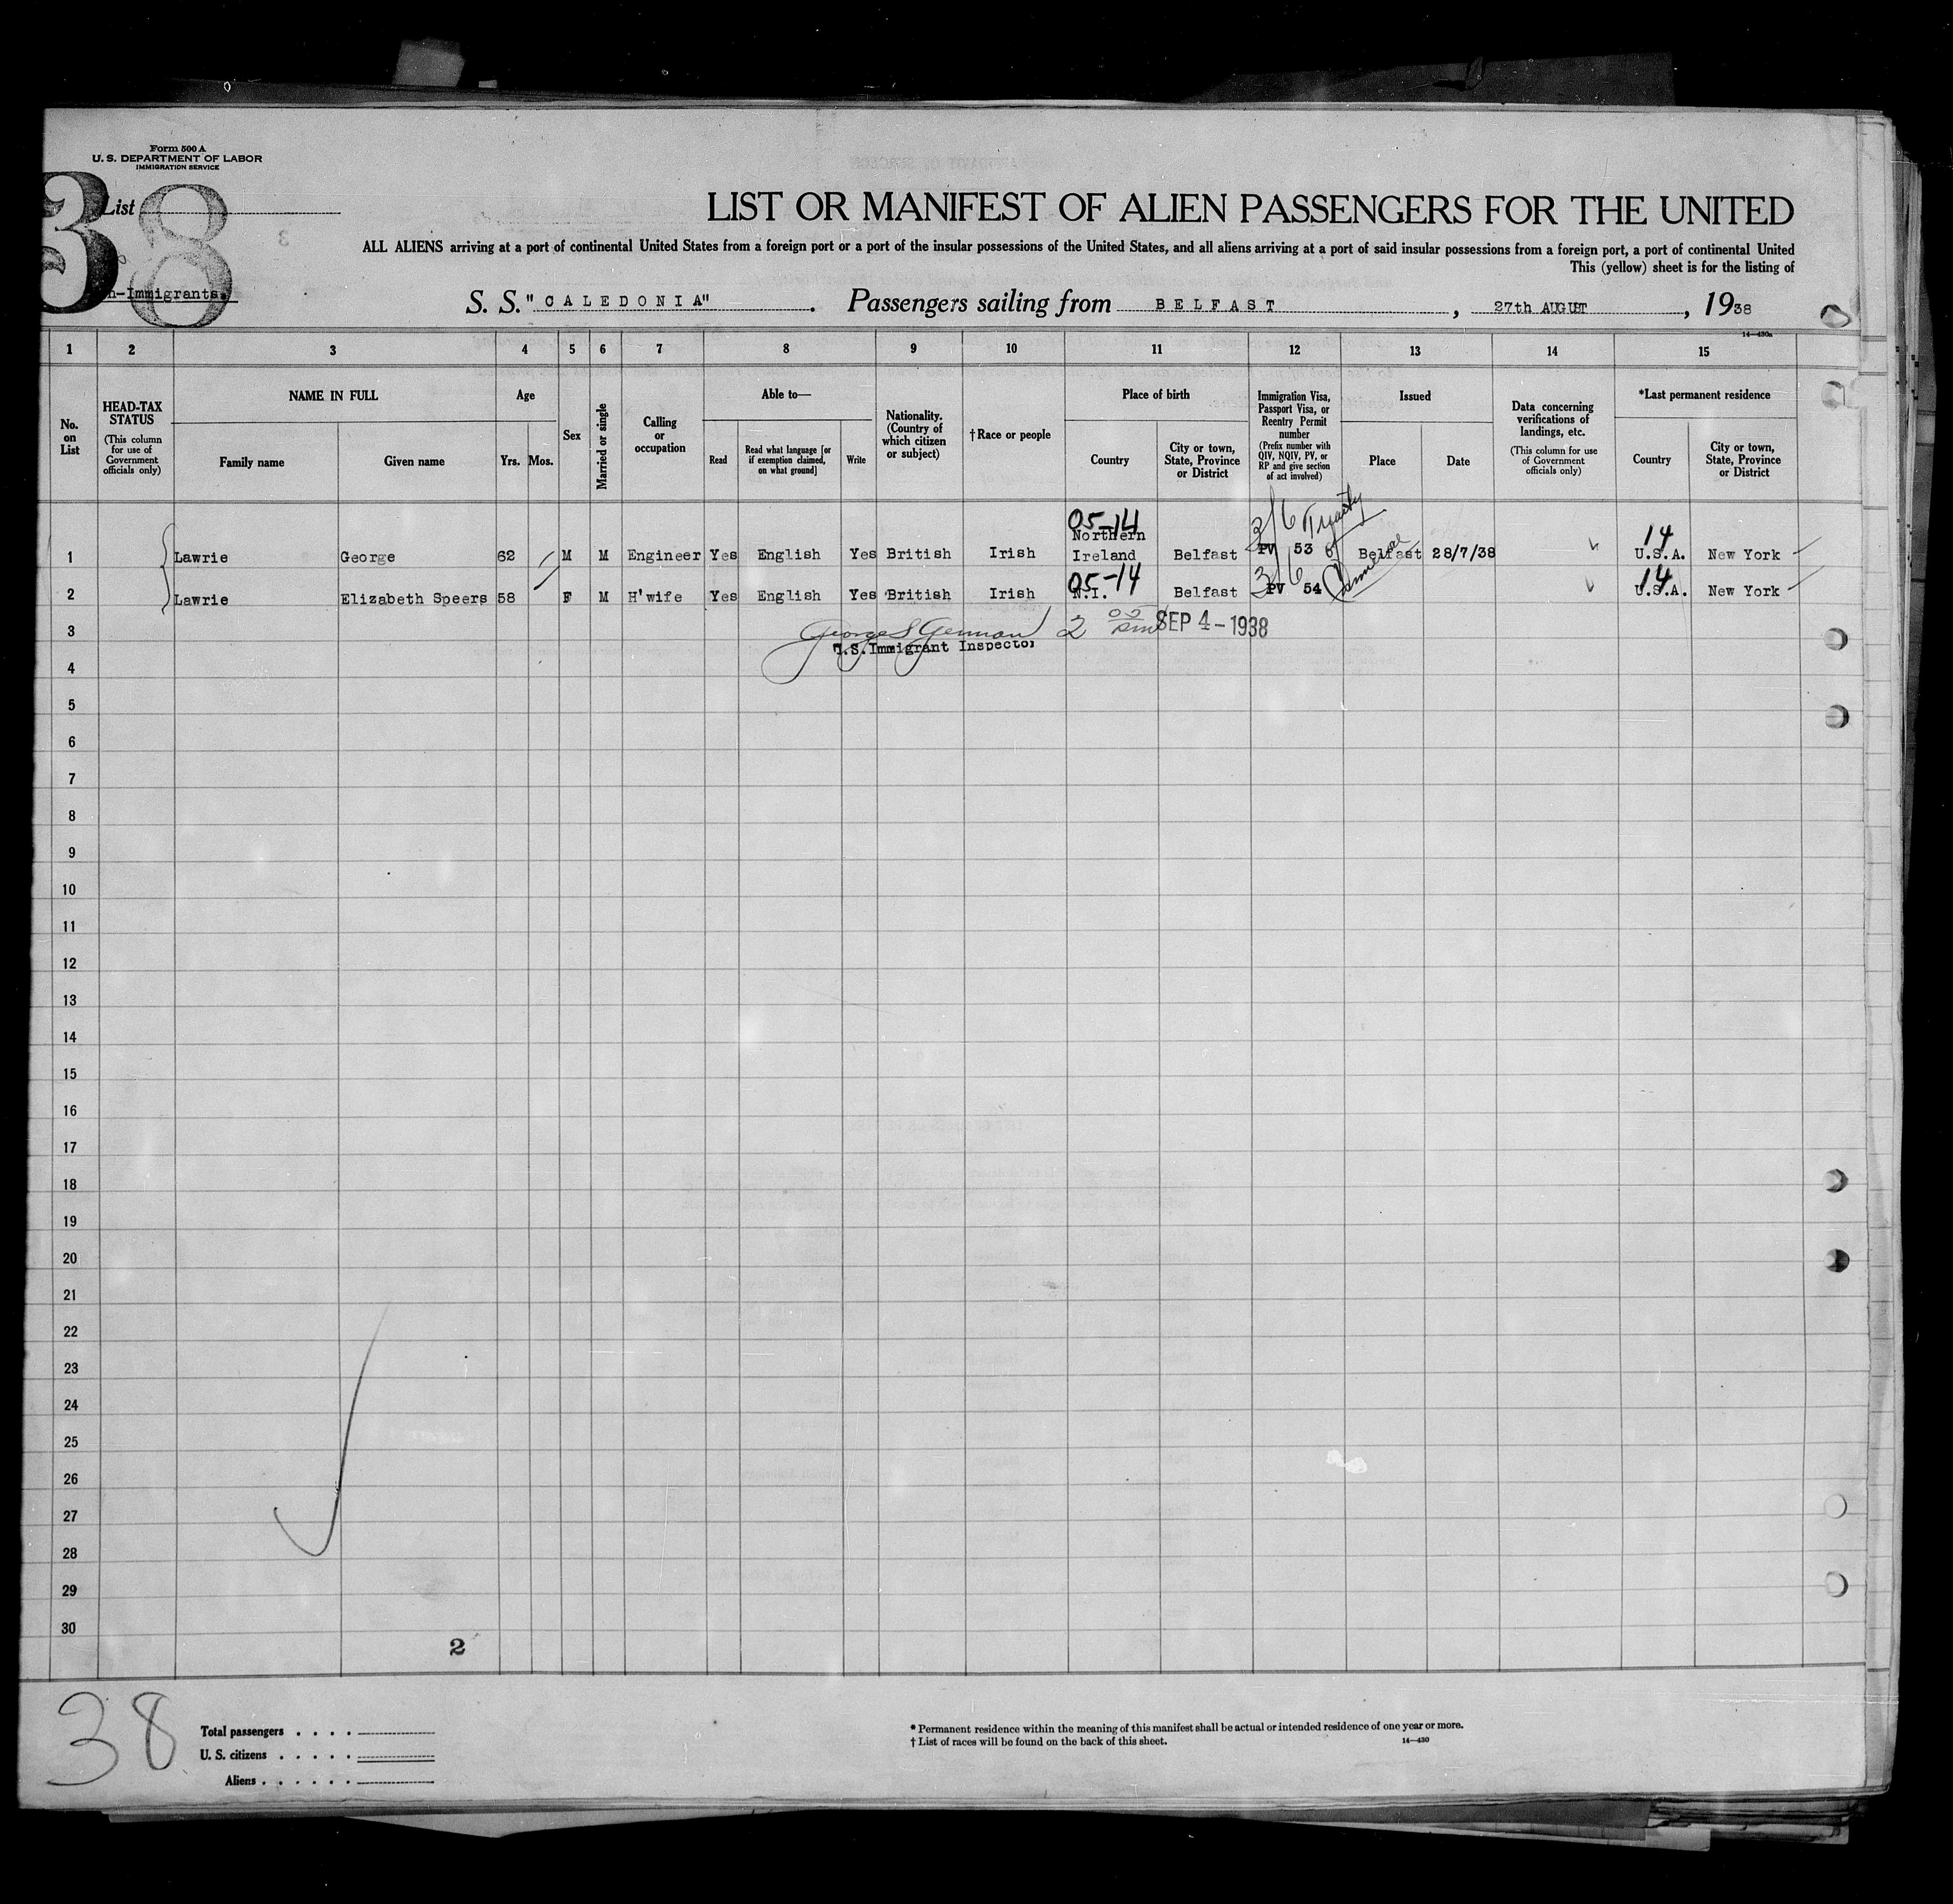 Form 500 A
U. S. DEPARTMENT OF LABOR
IMMIGRATION SERVICE
38
List
LIST OR MANIFEST OF ALIEN PASSENGERS FOR THE UNITED
ALL ALIENS arriving at a port of continental United States from a foreign port or a port of the insular possessions of the United States, and all aliens arriving at a port of said insular possessions from a foreign port, a port of continental United
This (yellow) sheet is for the listing of
n-Immigrants.
S. S. "CALEDONIA" . Passengers sailing from BELFAST , 27th AUGUST , 1938
14—430a
1 2 3 4 5 6 7 8 9 10 11 12 13 14 15
No. on List
HEAD-TAX STATUS
(This column for use of Government officials only)
NAME IN FULL
Family name Given name
Age
Yrs. Mos.
Sex
Married or single
Calling or occupation
Able to—
Read
Read what language [or if exemption claimed, on what ground]
Write
Nationality. (Country of which citizen or subject)
† Race or people
Place of birth
Country
City or town, State, Province or District
Immigration Visa, Passport Visa, or Reentry Permit number
(Prefix number with QIV, NQIV, PV, or RP and give section of act involved)
Issued
Place Date
Data concerning verifications of landings, etc.
(This column for use of Government officials only)
*Last permanent residence
Country
City or town, State, Province or District
05-14 3/6 Treaty 14
1 Lawrie George 62 M M Engineer Yes English Yes British Irish Northern Ireland Belfast PV 53 Belfast 28/7/38 U.S.A. New York
05-14 3/6 Commerce 14
2 Lawrie Elizabeth Speers 58 F M H'wife Yes English Yes British Irish N.I. Belfast PV 54 U.S.A. New York
3 George S German 2 05 pm SEP 4-1938
U.S. Immigrant Inspector
4
5
6
7
8
9
10
11
12
13
14
15
16
17
18
19
20
21
22
23
24
25
26
27
28
29
30
2
38
Total passengers . . . .
U. S. citizens . . . . .
Aliens . . . . . .
* Permanent residence within the meaning of this manifest shall be actual or intended residence of one year or more.
† List of races will be found on the back of this sheet.
14—430